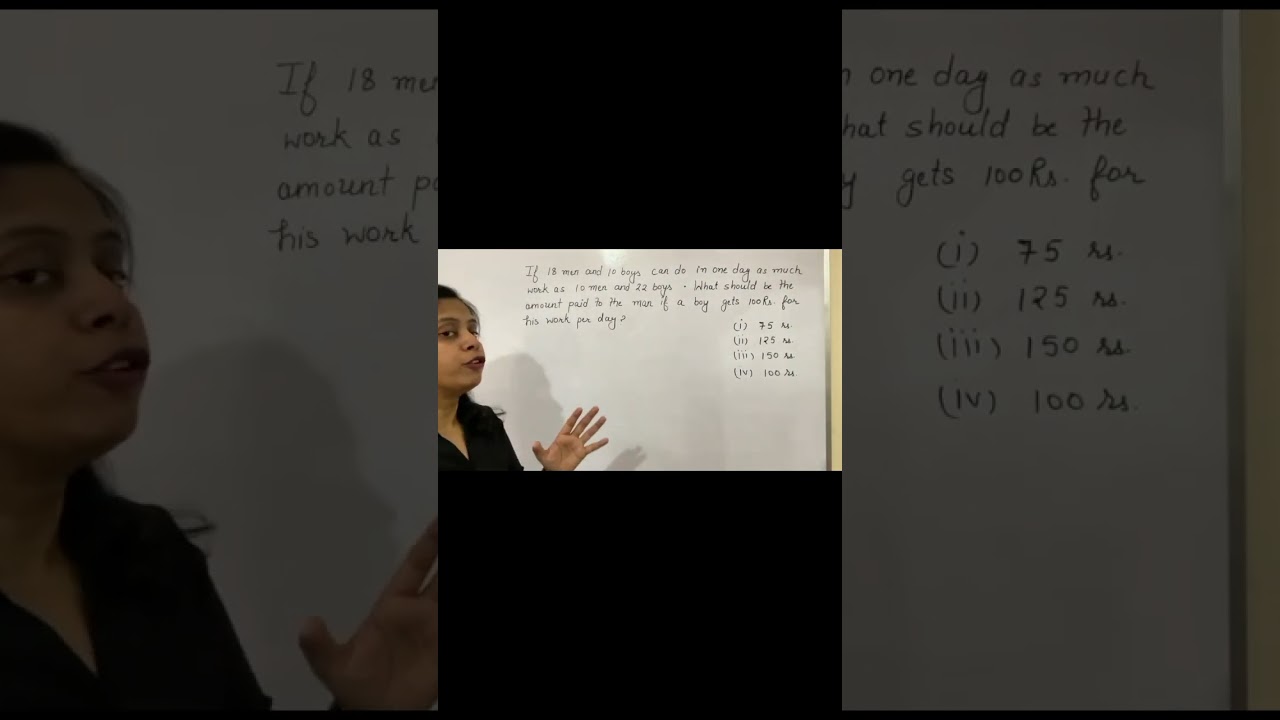 If 18 men and 10 boys can do in one day as much
work as 10 men and 22 boys . What should be the
amount paid to the man if a boy gets 100Rs. for
his work per day?
(i) 75 rs.
(ii) 125 rs.
(iii) 150 rs
(iv) 100 rs.